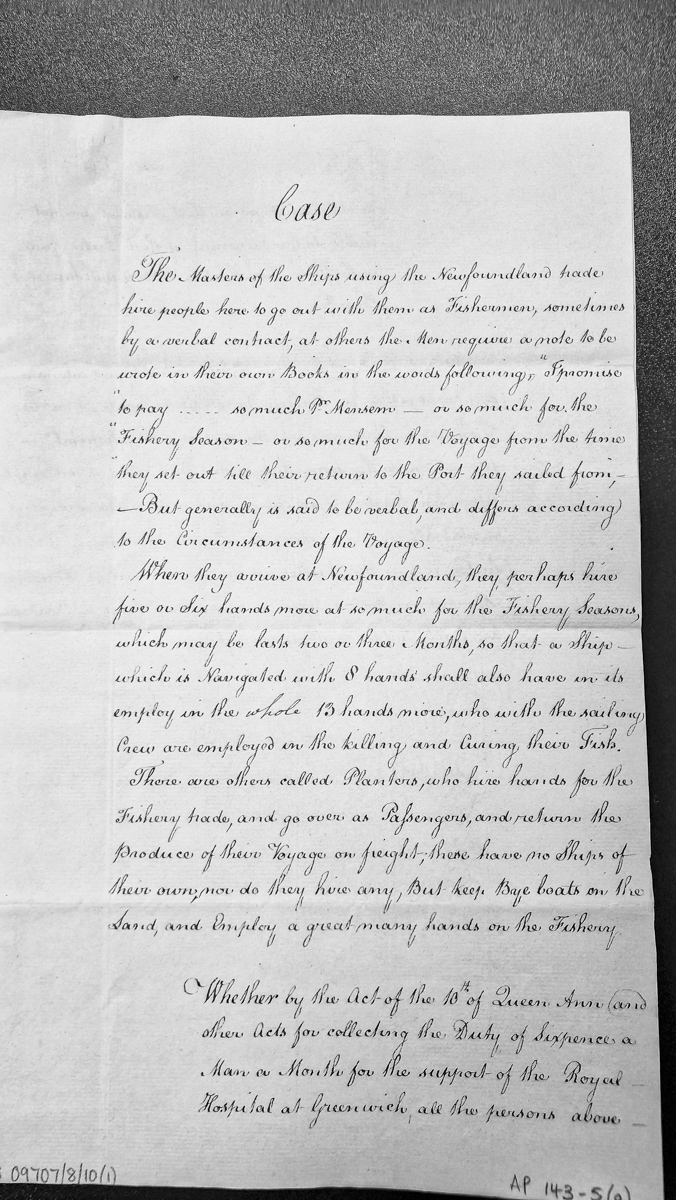 Case
The Masters of the Ships using the Newfoundland trade
hire people here to go out with them as Fishermen, sometimes
by a verbal contract, at others the Men require a note to be
wrote in their own Books in the words following, "I promise
"to pay ..... so much Pr. Mensem — or so much for the
"Fishery Season — or so much for the Voyage from the time
"they set out till their return to the Port they sailed from, —
— But generally is said to be verbal, and differs according
to the Circumstances of the Voyage.
When they arrive at Newfoundland, they, perhaps hire
five or Six hands more at so much for the Fishery Seasons,
which may be lasts two or three Months, so that a Ship —
which is Navigated with 8 hands shall also have in its
employ in the whole 13 hands more, who with the sailing
Crew are employed in the killing and Curing their Fish.
There are others called Planters, who hire hands for the
Fishery trade, and go over as Passengers, and return the
Produce of their Voyage on freight; these have no Ships of
their own, nor do they hire any, But keep Bye boats on the
Land, and Employ a great many hands on the Fishery.
Whether by the Act of the 10th of Queen Ann (and
other Acts for collecting the Duty of Sixpence a
Man a Month for the support of the Royal —
Hospital at Greenwich, all the persons above —
09707/8/10(1)
AP 143-5(a)